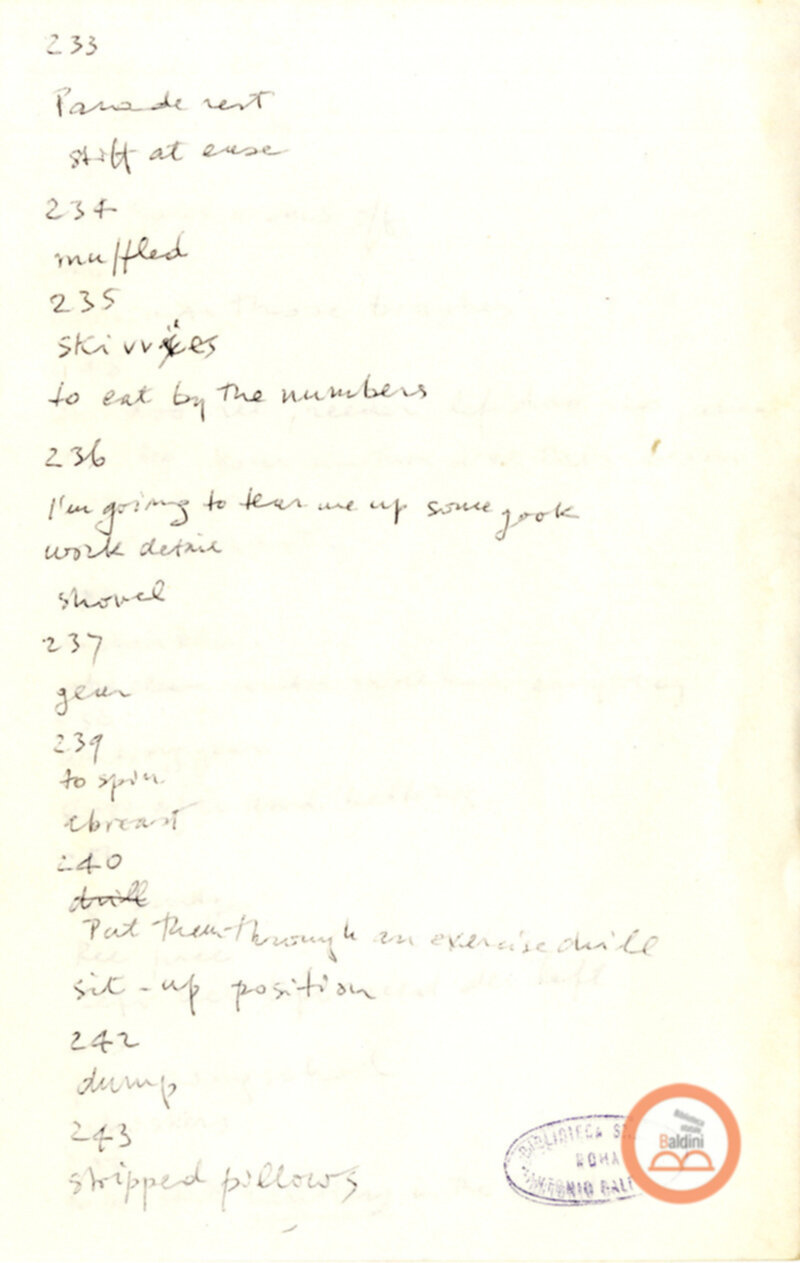 233
Parade rest
stiff at ease
234
muffled
235
skivvies
to eat by the numbers
236
I'm going to tear me up some gook
work detail
shovel
237
gear
239
to spin
abreast
240
drill
Put them through an exercise drill
sit-up position
242
dump
243
stripped pillows
BIBLIOTECA
ROMA
ANTONIO BAL
Biblioteca
statale
Baldini